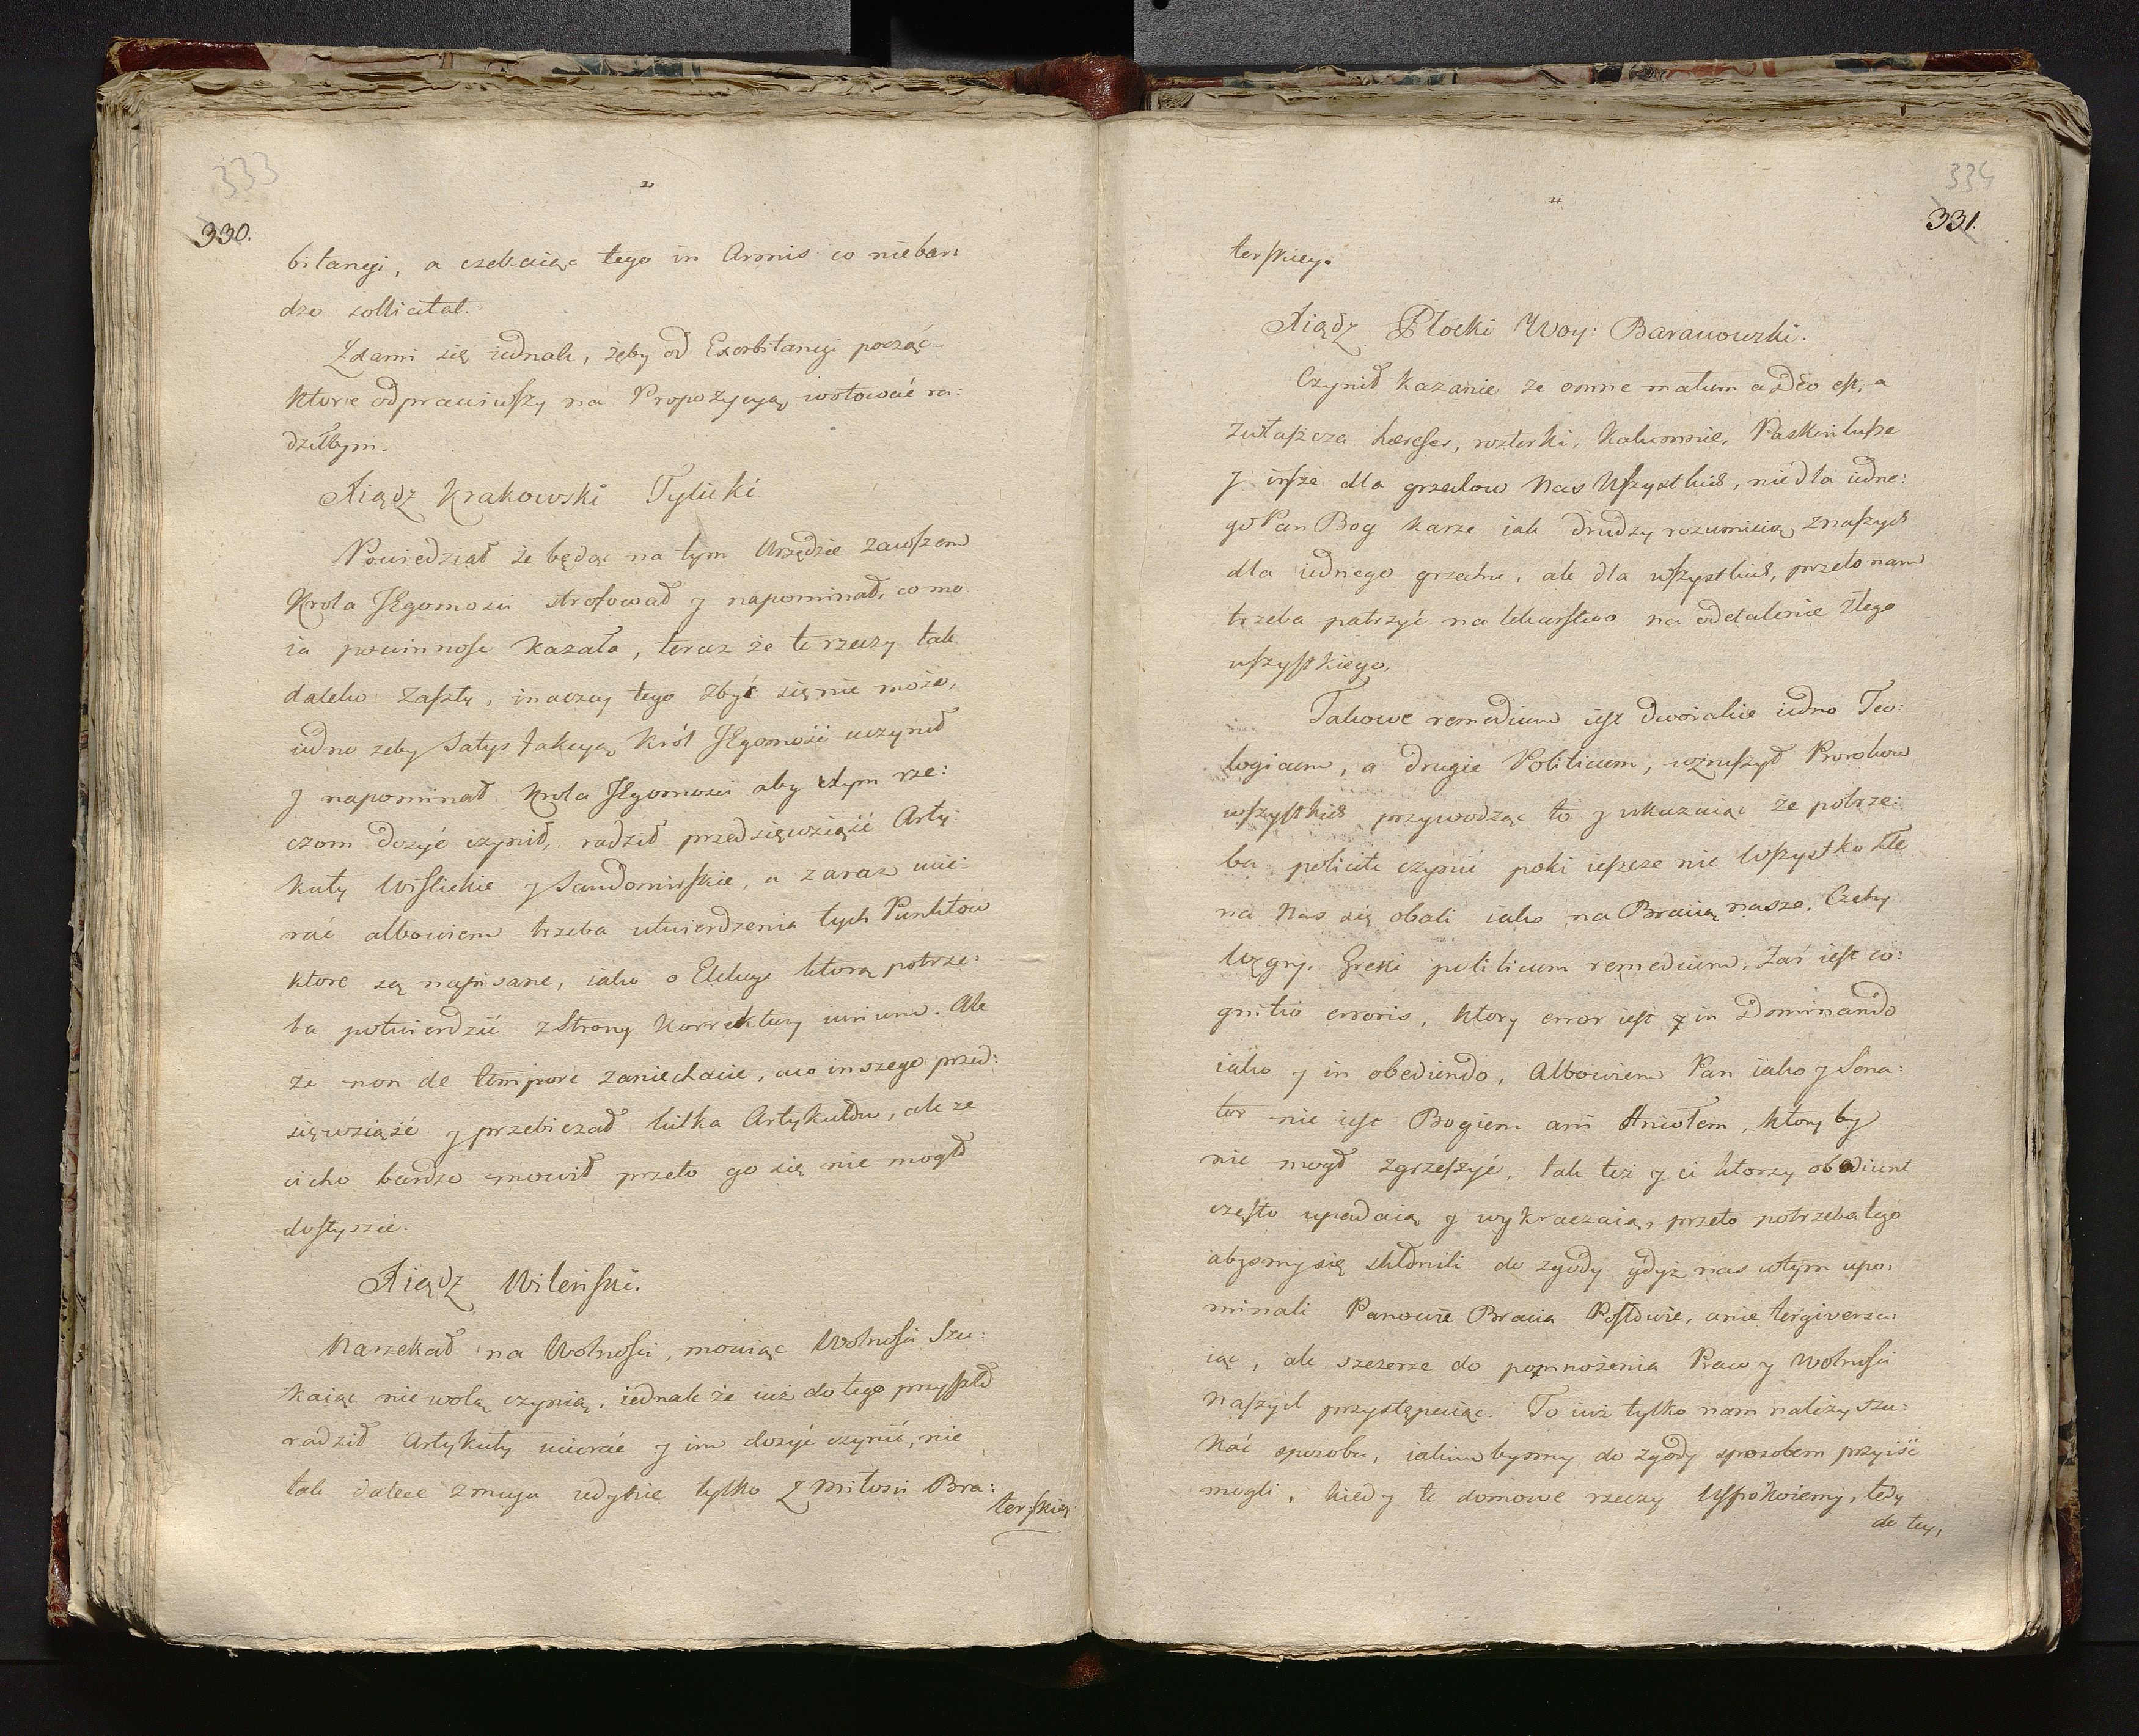 333
330.
bitangi, a czekaiąc tego in Armis co niebar:
dzo sollicitat.
Zdami się iednak, żęby od Exorbitangi począć
ktore odprawiwszy na Propozycyą, wotować ra:
dziłbym.
Xiądz Krakowski Tylicki
Powiedział że będąc na tym Urzędzie zawszem
Krola JEgomosci strofował y napominał, co mo
ia powinnosc kazała, teraz że te rzeczy tak
daleko zaszły, inaczey tego zbyć się nie może,
iedno zeby Satysfakcyą Król JEgomość uczynił
y napominał Krola JEgomosci aby tym rze:
czom dosyć czynił, radził przedsięwziąść Arty:
kuły Wislickie y Sandomirskie, a zaraz ucie:
rać albowiem trzeba utwierdzenia tych Punktow
ktore są napisane, iako o Elekcyi ktorą potrze:
ba potwierdzić z Strony Korrektury iurium. Ale
ze non de tempore zaniechacie, a co inszego przed:
sięwziąść y przebiezał kilka Artykułów, ale ze
cicho bardzo mowił przeto go się nie mogło
dosłyszeć.
Xiądz Wileński.
Narzekał na Wolności, mowiąc Wolności Szu:
kaiąc niewolą czynią, iednak że iuż do tego przyszło
radził Artykuły ucierać y im dosyć czynić, nie
tak dalece z musu iedynie tylko z Miłosci Bra:
terskiey
334
331.
terskiey.
Xiądz Płocki Woy: Baranowski.
Czynił Kazanie ze omne malum a Deo est, a
zwłaszcza hæreses, rozterki, Kalumnie, Paskwilusze
y insze dla grzechow Nas Wszystkich, nie dla iedne:
go Pan Bog karze iak drudzy rozumieią z naszych
dla iednego grzechu, ale dla wszystkich, przeto nam
trzeba patrzyć na lekarstwo na oddalenie złego
wszystkiego.
Takowe remedium iest dwoiakie iedno Teo:
logicum, a drugie Politicum, wzruszył Prorokow
wszystkich przywodząc to y ukazuiąc że potrze:
ba policite czynić poki ieszcze nie Wszystko złe
na Nas się obali iako na Bracią nasze. Czehy
Węgry. Greki politicum remedium. Zaś iest co:
gnitio erroris, ktory error iest y in Dominando
iako y in obediendo, Albowiem Pan iako y Sena:
tor nie iest Bogiem ani Aniołem, ktory by
nie mogł zgrzeszyć, tak też y ci ktorzy obediunt
często upadaią y wykraczaią, przeto potrzeba tego
abysmy się skłonili do zgody gdyż nas o tym upo:
minali Panowie Bracia Posłowie, a nie tergiversu:
iąc, ale szczerze do pomnożenia Praw y Wolności
Naszych przystępuiąc. To iuż tylko nam należy szu:
kać sposobu, iakim bysmy do zgody sposobem przyiść
mogli, kiedy te domowe rzeczy Uspokoiemy, tedy
do tey,